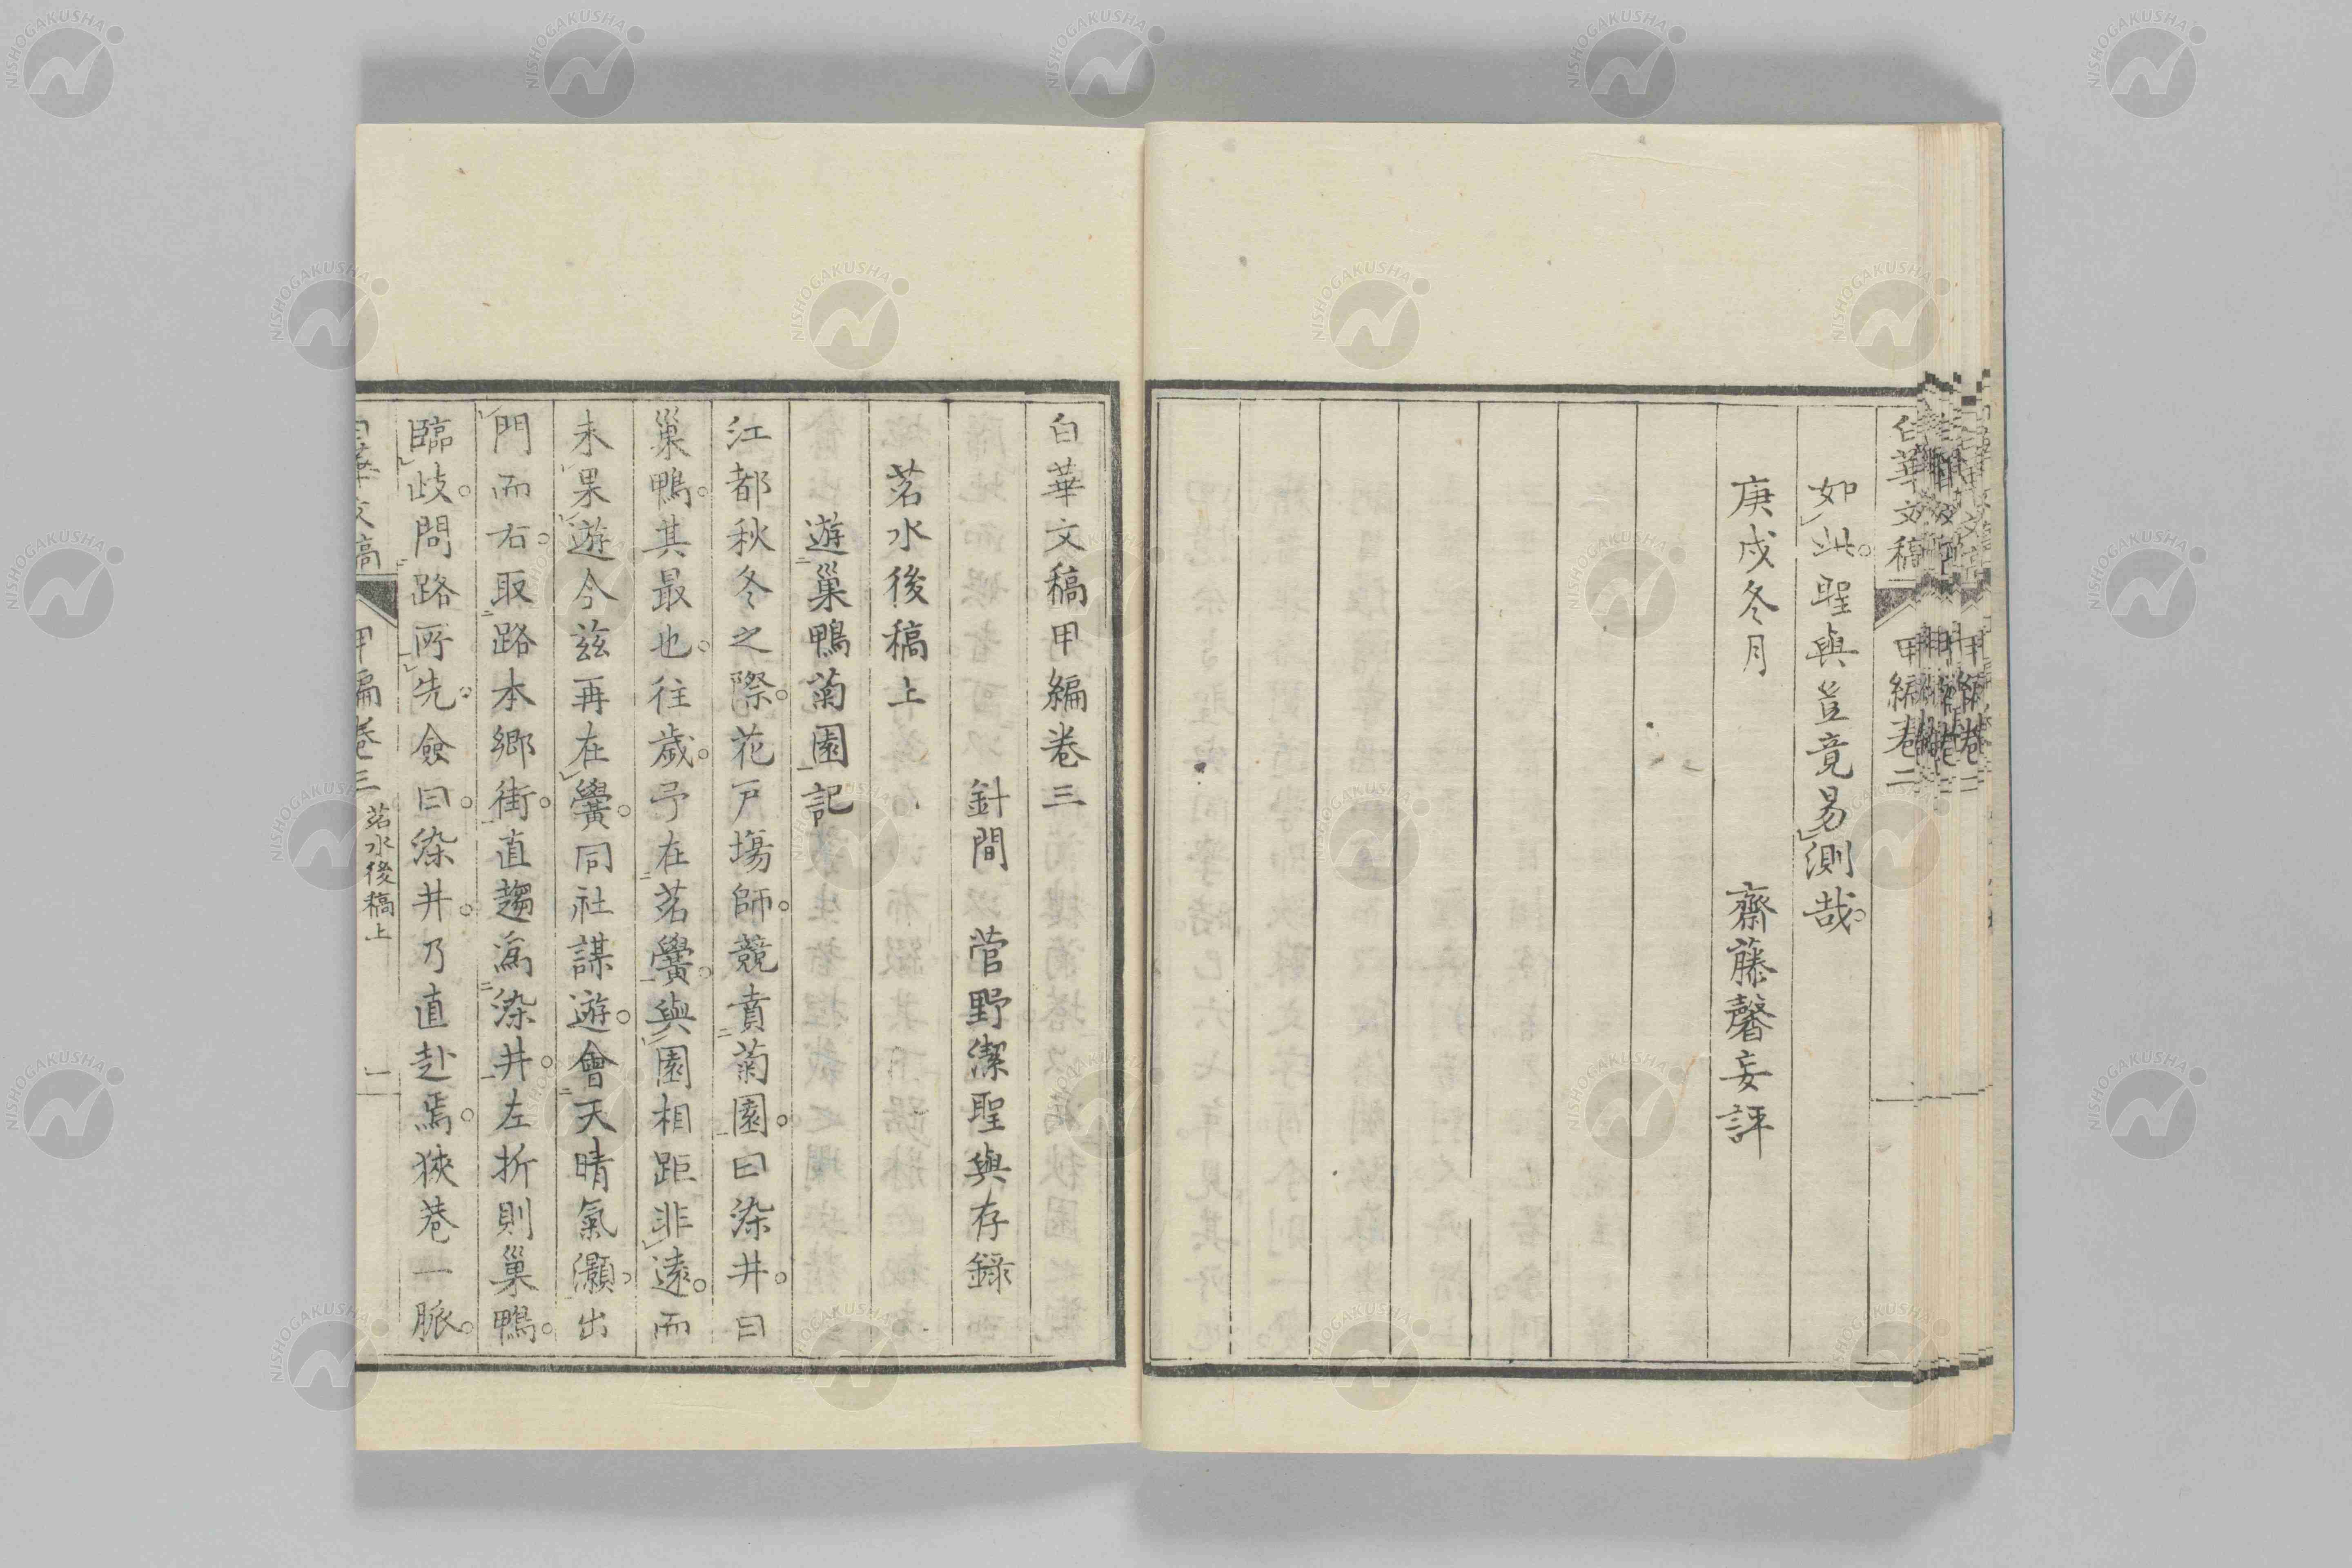 白華文稿 甲編卷二
如此。聖與豈竟易測哉。
庚戌冬月 齋藤馨妄評
白華文稿甲編卷三
針間 菅野潔聖與存錄
茗水後稿上
遊巢鴨菊園記
江都秋冬之際。花戶塲師。競賁菊園。曰染井。曰
巢鴨。其最也。往歲。予在茗黌。與園相距非遠。而
未果遊今茲再在黌。同社謀遊。會天晴氣灝。出
門而右。取路本鄉街。直趨爲染井。左折則巢鴨。
臨歧。問路所先。僉曰。染井。乃直赴焉。狹巷一脈。
白華文稿 甲編卷三 茗水後稿上 一
NISHOGAKUSHA